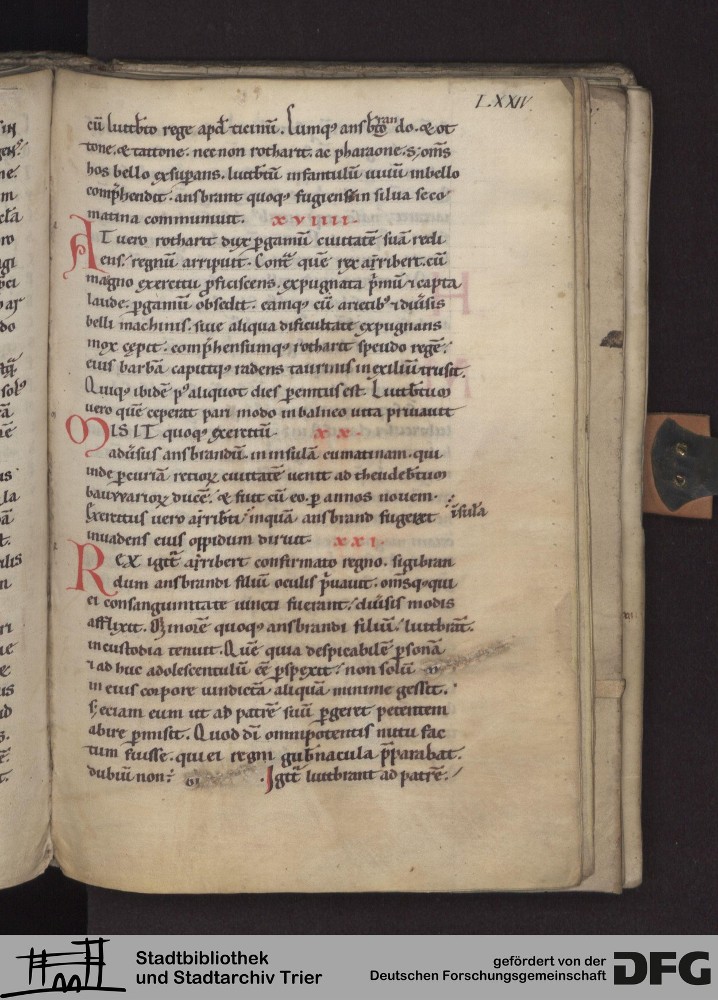 LXXIV
cū luttb̄to rege apd̄ ticinū. Iumq; ansb̄to ran do. & ot
tone. & tattone. nec non rotharit. ac pharaone. s; om̄s
hos bello exsupans. luttb̄tū infantulū uiuū in bello
comp̄hendit. ansbrant quoq; fugiens in silua se co
matina communiuit. XVIIII
AT uero rotharit dux pgamū ciuitatē suā redi
ens. regnū arripuit. Cont̄ quē rex ar̄ribert. cū
magno exercitu pficiscens. expugnata p̄mū ⁊ capta
laude. pgamū obsedit. eamq; cū arietib; ⁊ diūsis
belli machinis. siue aliqua dificultate expugnans
mox cepit. comp̄hensumq; rotharit speudo regē.
eius barbā caputq; radens taurinis in exiliū trusit.
Quiq; ibidē p; aliquot dies peremtus est. Luttb̄tum
uero quē ceperat pari modo in balneo uita priuauit
MISIT quoq; exercitū. XX.
adūsus ansbrandū. in insulā cumatinam. qui
inde p curiā retiorꝝ ciuitatē uenit ad theudeb̄tum
bauuuariorꝝ ducē. & fuit cū eo. p annos nouem.
Exercitus uero ar̄rib̄ti inquā ansbrand fugerat insulā
inuadens eius oppidum diruit XXI.
REX igit̄ ar̄ribert confirmato regno. sigibran
dum ansbrandi filiū oculis p̄uauit. om̄sq; qui
ei consanguinitate uincti fuerant. diūsis modis
afflixit. Minorē quoq; ansbrandi filiū. luttbrāt.
in custodia tenuit. Quē quia despicabilē psonā
⁊ ad huc adolescentulū eē pspexit. non solū
in eius corpore uindictā aliquā minime gessit.
s; eciam eum ut ad patrē suū pgeret petentem
abire pmisit. Quod dī omnipotentis nutu fac
tum fuisse. qui ei regni gub̄nacula p̄parabat.
dubiū non. Igit̄ luttbrant ad patrē.
Stadtbibliothek
und Stadtarchiv Trier
gefördert von der
Deutschen Forschungsgemeinschaft
DFG